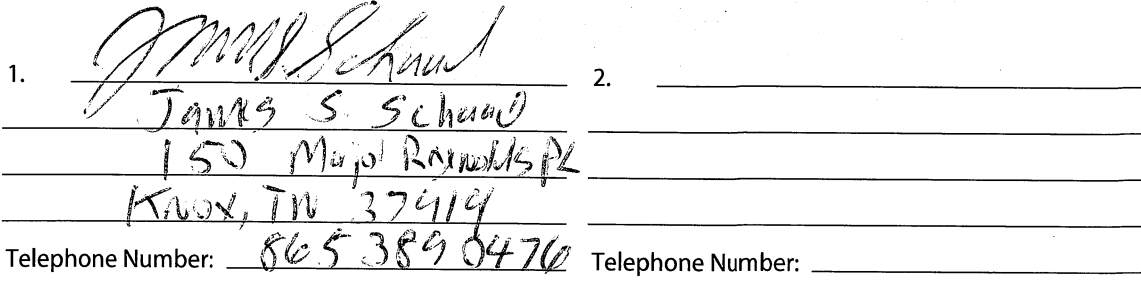 1.
James S. Schaad
150 Major Reynolds PL
Knox, TN 37919
Telephone Number: 865 389 0476
2.
Telephone Number: